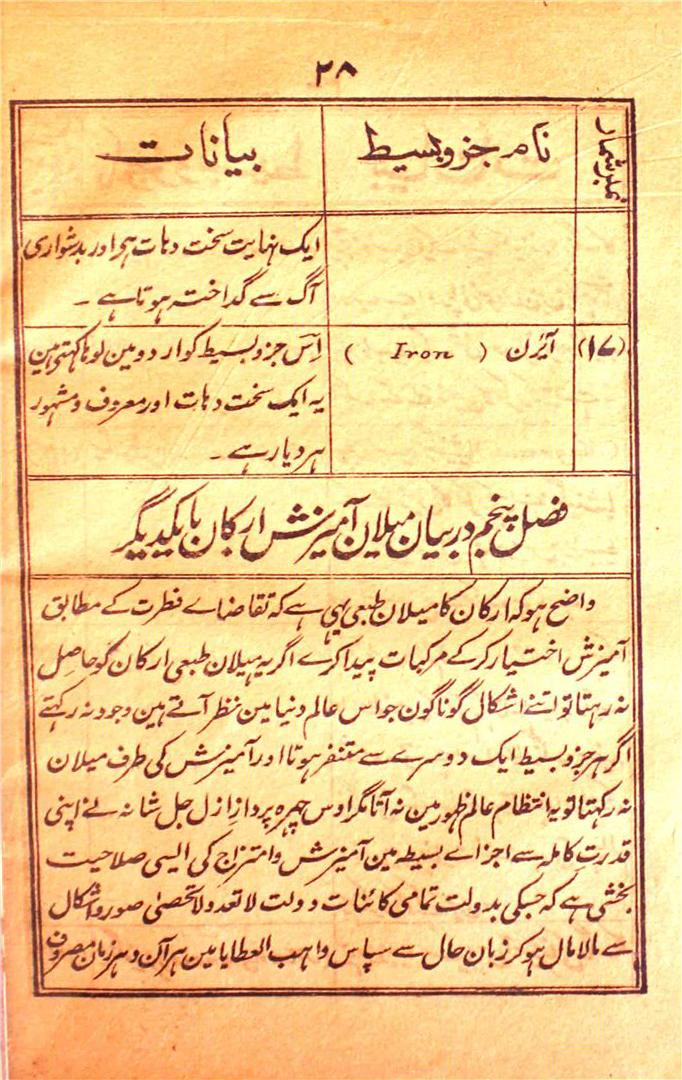 ۲۸
نمبر شمار
نام جزو بسیط
بیانات
ایک نہایت سخت دہات ہر اور بدشواری
آگ سے گداختہ ہوتا ہے ۔
(۱۷)
آیَرن ( Iron )
اِس جزو بسیط کو اردو مین لوہا کہتی ہین
یہ ایک سخت دہات اور معروف و مشہور
ہر دیار ہے ۔
فصل پنجم در بیان میلان آمیزش ارکان با یکدیگر
واضح ہو کہ ارکان کا میلان طبعی یہی ہے کہ تقاضاے فطرت کے مطابق
آمیزش اختیار کر کے مرکبات پیدا کرے اگر یہ میلان طبعی ارکان کو حاصل
نہ رہتا تو اتنے اشکال گوناگون جو اس عالم دنیا مین نظر آتے ہین وجود نہ رکہتے
اگر ہر جزو بسیط ایک دوسرے سے متنفر ہوتا اور آمیزش کی طرف میلان
نہ رکہتا تو یہ انتظام عالم ظہور مین نہ آتا مگر اوس چہرہ پرداز ازل جل شانہ نے اپنی
قدرت کاملہ سے اجزاے بسیطہ مین آمیزش و امتزاج کی ایسی صلاحیت
بخشی ہے کہ جسکی بدولت تمامی کائنات دولت لا تعد ولا تحصیٰ صور و اشکال
سے مالا مال ہو کر زبان حال سے سپاس واہب العطایا مین ہر آن و ہر زمان مصروف